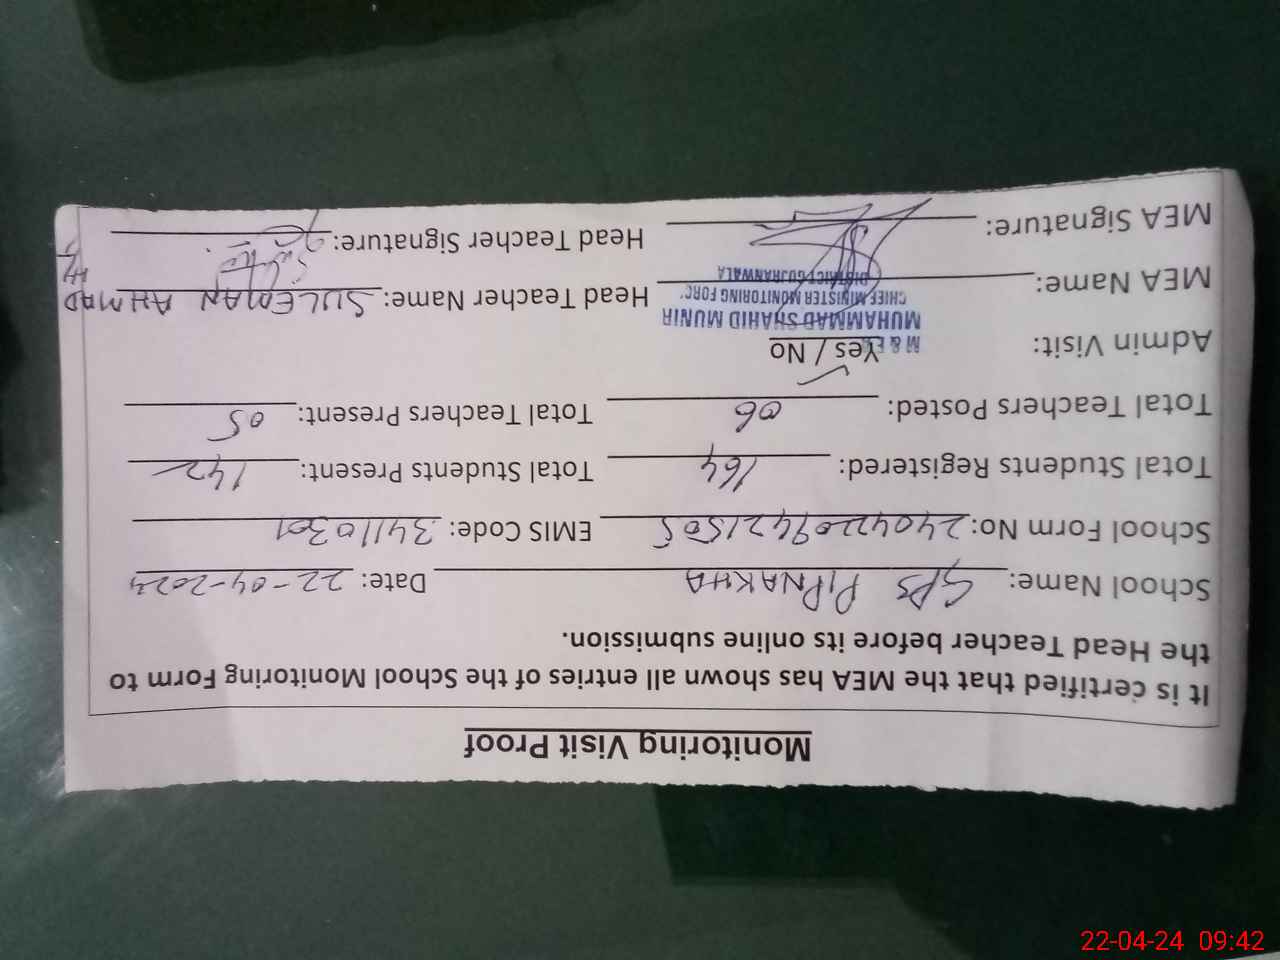 Monitoring Visit Proof
It is certified that the MEA has shown all entries of the School Monitoring Form to
the Head Teacher before its online submission.
School Name: GPS PIPNAKHA Date: 22-04-2024
School Form No: 24042209421505 EMIS Code: 34110301
Total Students Registered: 164 Total Students Present: 142
Total Teachers Posted: 06 Total Teachers Present: 05
Admin Visit: Yes / No
M & E
MUHAMMAD SHAHID MUNIR
CHIEF MINISTER MONITORING FORC
DISTRICT GUJRANWALA
MEA Name: Head Teacher Name: SULEMAN AHMAD
MEA Signature: Head Teacher Signature:
22-04-24 09:42